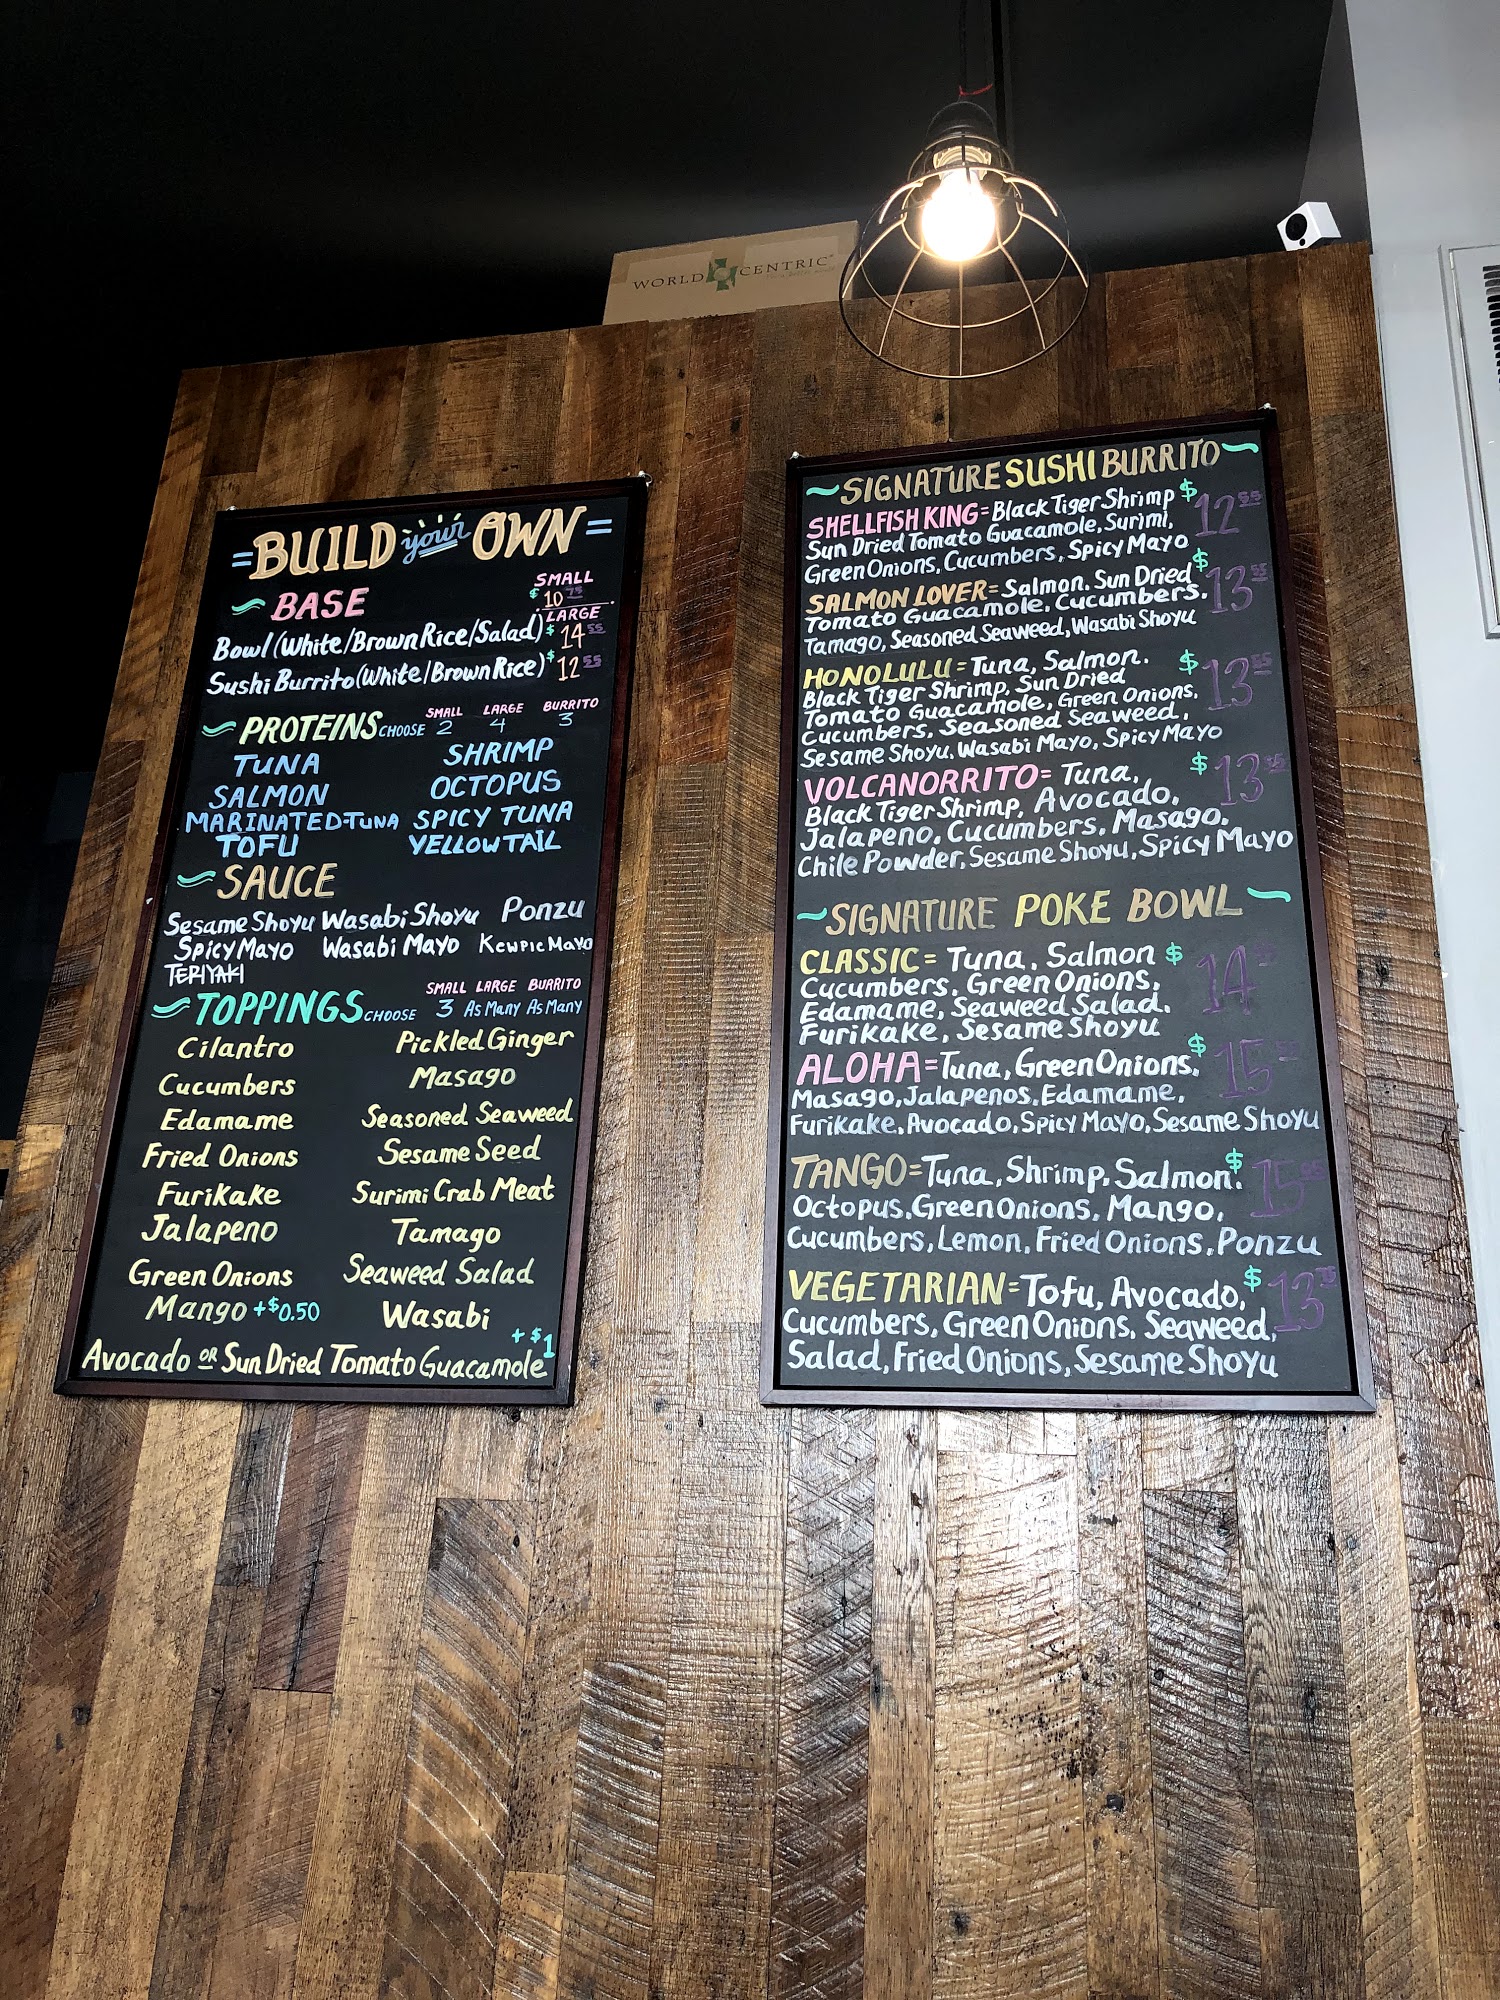 WORLD CENTRIC
BUILD your OWN
BASE
SMALL
$10.75
LARGE
Bowl (White/Brown Rice/Salad) $14.55
Sushi Burrito (White/Brown Rice) $12.55
PROTEINS CHOOSE SMALL 2 LARGE 4 BURRITO 3
TUNA SHRIMP
SALMON OCTOPUS
MARINATED TUNA SPICY TUNA
TOFU YELLOWTAIL
SAUCE
Sesame Shoyu Wasabi Shoyu Ponzu
Spicy Mayo Wasabi Mayo Kewpie Mayo
TERIYAKI
TOPPINGS CHOOSE SMALL 3 LARGE As Many BURRITO As Many
Cilantro Pickled Ginger
Cucumbers Masago
Edamame Seasoned Seaweed
Fried Onions Sesame Seed
Furikake Surimi Crab Meat
Jalapeno Tamago
Green Onions Seaweed Salad
Mango +$0.50 Wasabi
Avocado OR Sun Dried Tomato Guacamole +$1
SIGNATURE SUSHI BURRITO
SHELLFISH KING = Black Tiger Shrimp $12.55
Sun Dried Tomato Guacamole, Surimi,
Green Onions, Cucumbers, Spicy Mayo
SALMON LOVER = Salmon. Sun Dried $13.55
Tomato Guacamole, Cucumbers.
Tamago, Seasoned Seaweed, Wasabi Shoyu
HONOLULU = Tuna, Salmon. $13.55
Black Tiger Shrimp, Sun Dried
Tomato Guacamole, Green Onions,
Cucumbers, Seasoned Seaweed,
Sesame Shoyu, Wasabi Mayo, Spicy Mayo
VOLCANORRITO = Tuna, $13
Black Tiger Shrimp, Avocado,
Jalapeno, Cucumbers, Masago.
Chile Powder, Sesame Shoyu, Spicy Mayo
SIGNATURE POKE BOWL
CLASSIC = Tuna, Salmon $14
Cucumbers, Green Onions,
Edamame, Seaweed Salad.
Furikake, Sesame Shoyu
ALOHA = Tuna, Green Onions, $15
Masago, Jalapenos, Edamame,
Furikake, Avocado, Spicy Mayo, Sesame Shoyu
TANGO = Tuna, Shrimp, Salmon. $15
Octopus, Green Onions, Mango,
Cucumbers, Lemon, Fried Onions, Ponzu
VEGETARIAN = Tofu, Avocado, $13
Cucumbers, Green Onions, Seaweed,
Salad, Fried Onions, Sesame Shoyu